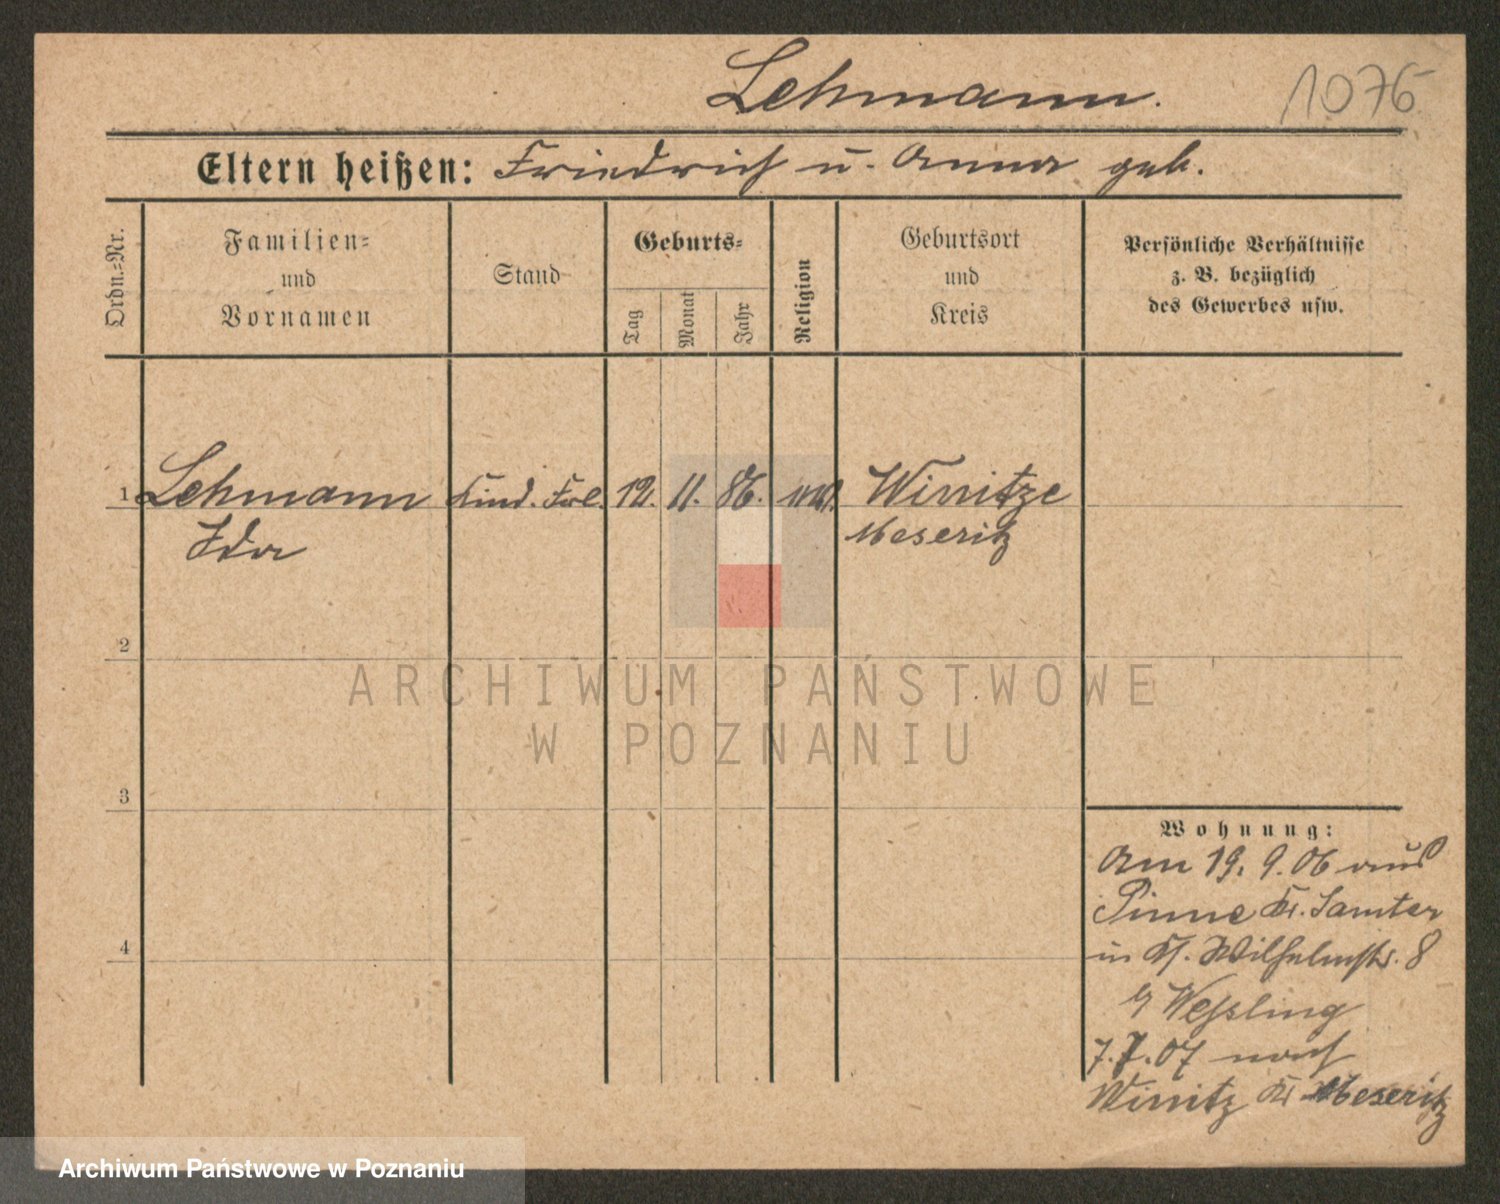 Lehmann.
1076
Eltern heißen: Friedrich u. Anna geb.
Ordn.=Nr.
Familien=
und
Vornamen
Stand
Geburts=
Tag
Monat
Jahr
Religion
Geburtsort
und
Kreis
Persönliche Verhältnisse
z. B. bezüglich
des Gewerbes usw.
1 Lehmann Kind. Frl. 12. 11. 86. Winitze
Ida Meseritz
2
3
4
Wohnung:
Am 19. 9. 06 aus
Pinne Kr. Samter
in Kf. Wilhelmstr. 8
b/ Weßling
7. 7. 07 nach
Winitz Kr Meseritz
ARCHIWUM PAŃSTWOWE
W POZNANIU
Archiwum Państwowe w Poznaniu